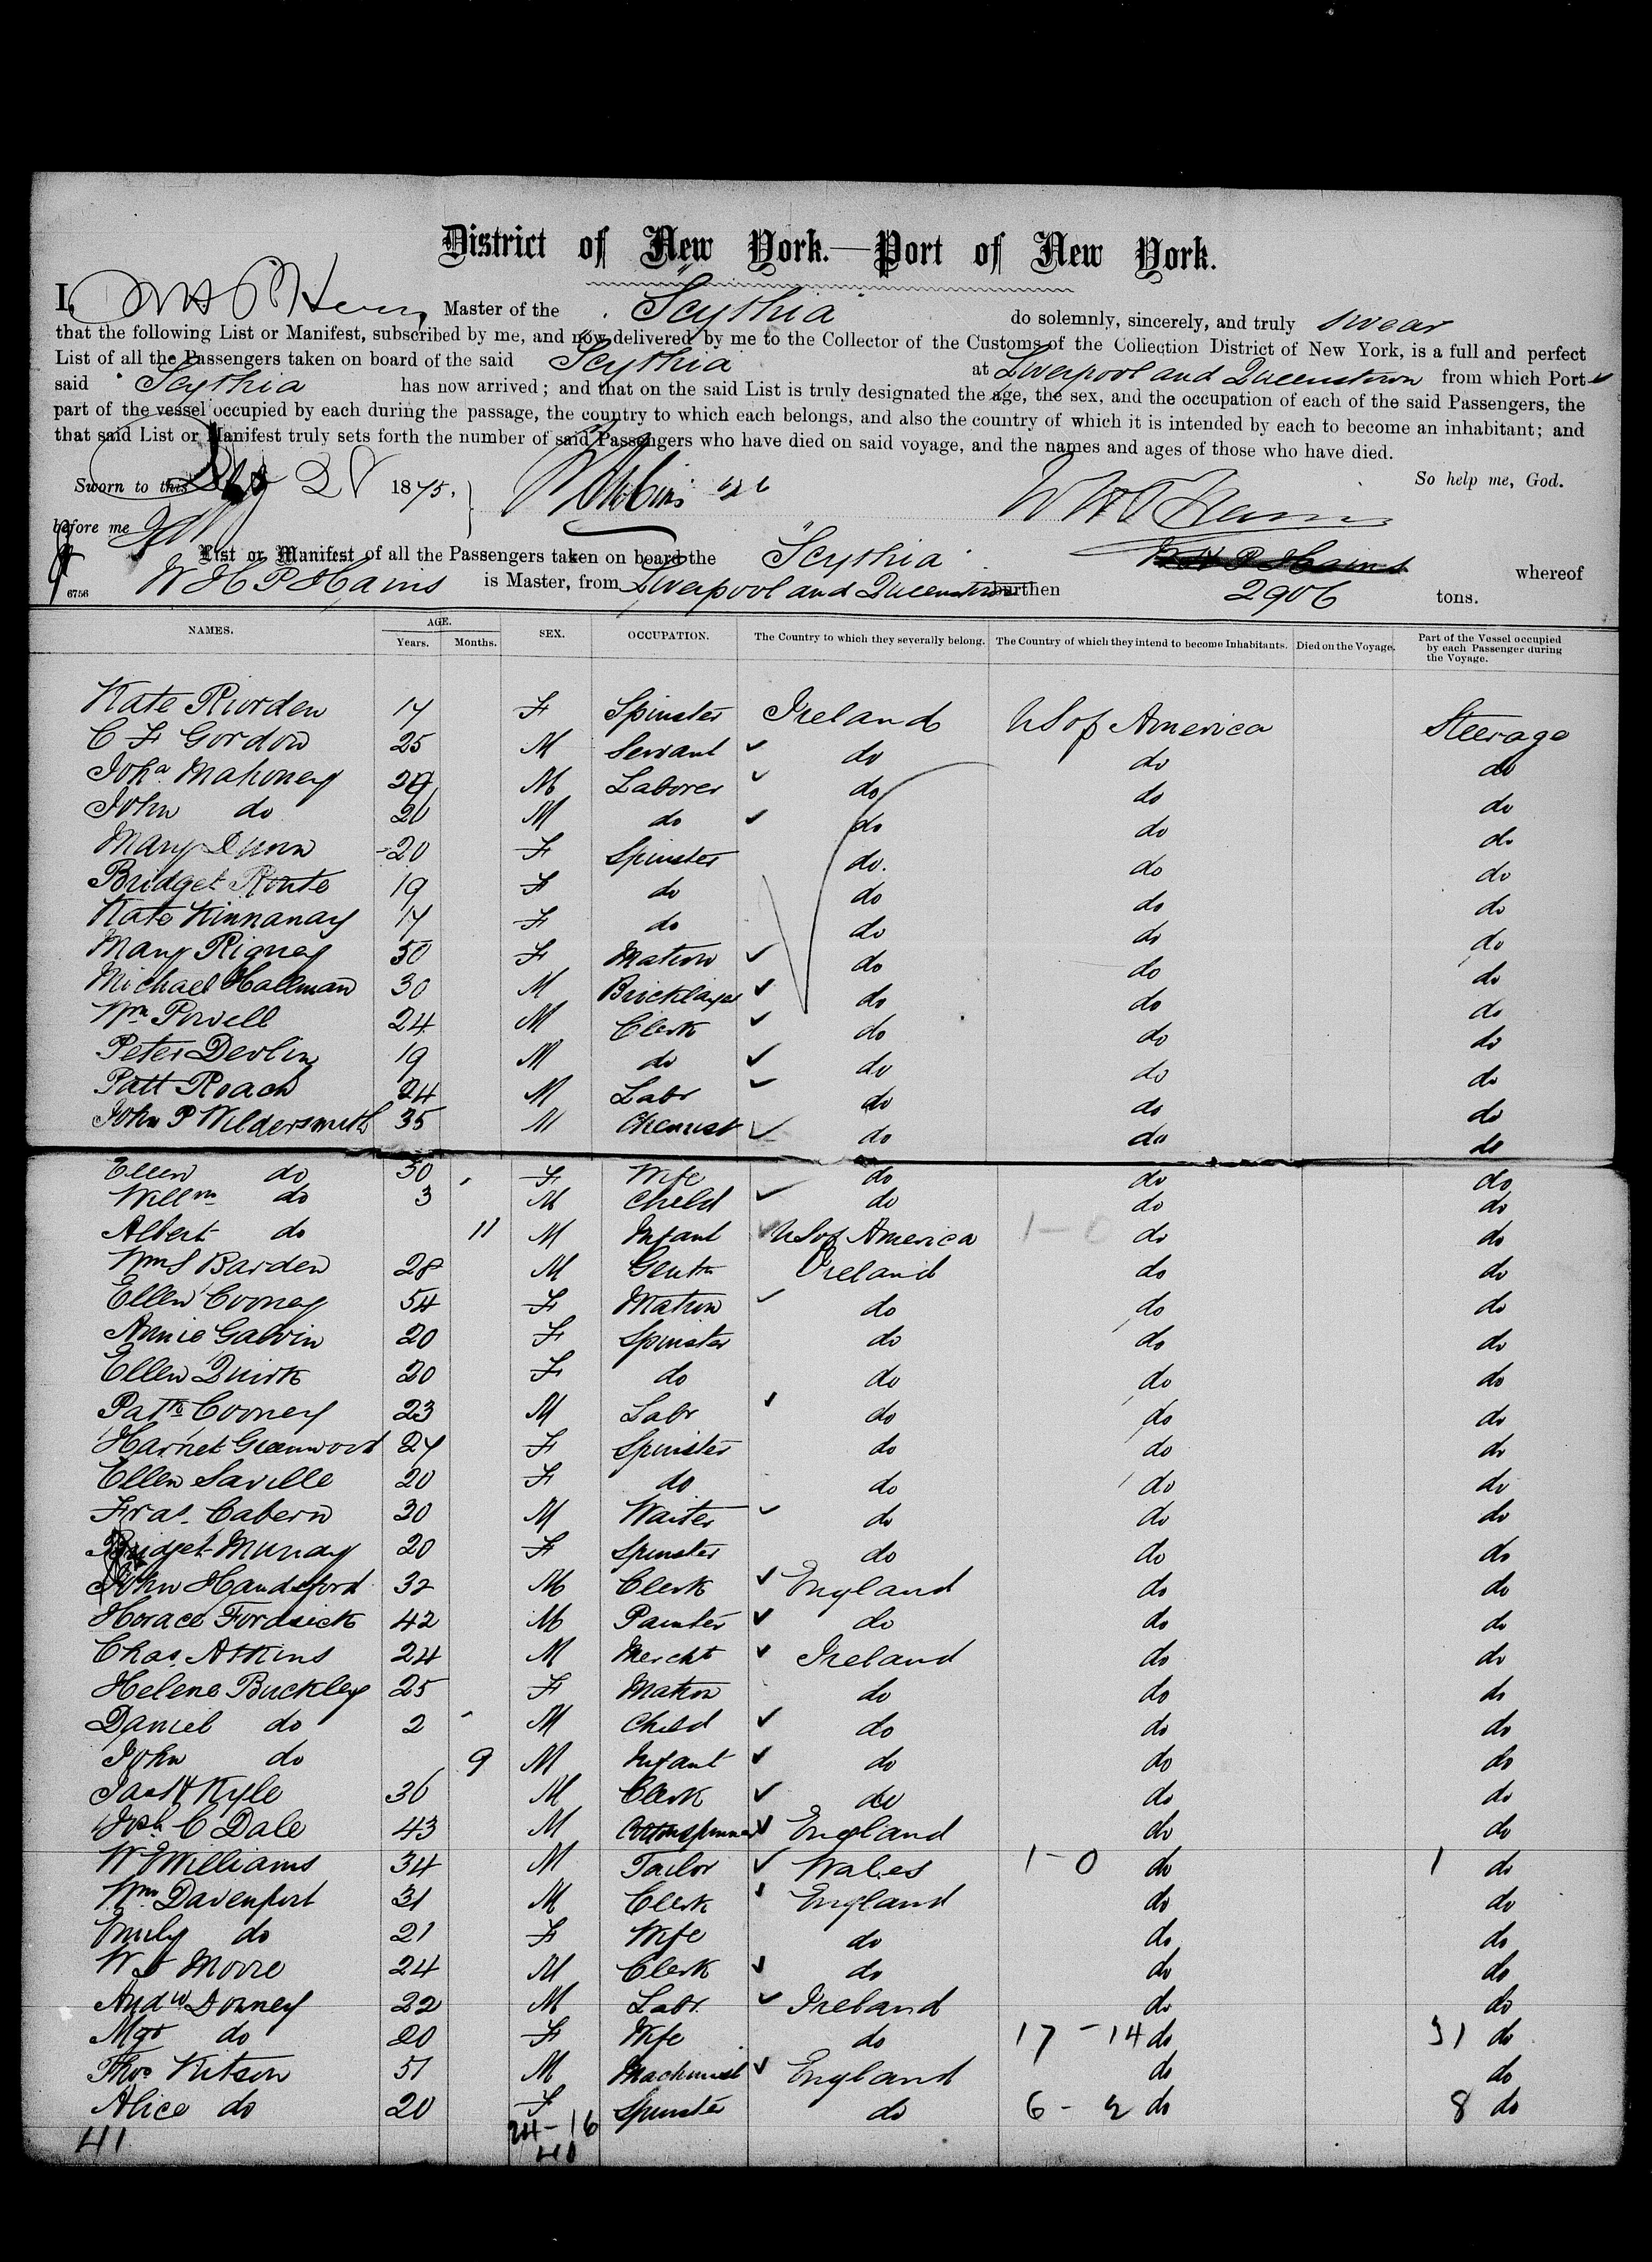 District of New York.—Port of New York.
I, W H P Hains Master of the "Scythia" do solemnly, sincerely, and truly swear
that the following List or Manifest, subscribed by me, and now delivered by me to the Collector of the Customs of the Collection District of New York, is a full and perfect
List of all the Passengers taken on board of the said Scythia at Liverpool and Queenstown from which Port s
said "Scythia has now arrived; and that on the said List is truly designated the age, the sex, and the occupation of each of the said Passengers, the
part of the vessel occupied by each during the passage, the country to which each belongs, and also the country of which it is intended by each to become an inhabitant; and
that said List or Manifest truly sets forth the number of said Passengers who have died on said voyage, and the names and ages of those who have died.
So help me, God.
Sworn to this 28 1875, W H P Hains
before me
List or Manifest of all the Passengers taken on board the "Scythia" W H P Hains whereof
6756 W H P Hains is Master, from Liverpool and Queenstown burthen 2906 tons.
NAMES. AGE. Years. Months. SEX. OCCUPATION. The Country to which they severally belong. The Country of which they intend to become Inhabitants. Died on the Voyage. Part of the Vessel occupied by each Passenger during the Voyage.
Kate Riorden 17 F Spinster Ireland US of America Steerage
C F Gordon 25 M Servant do do do
Joha Mahoney 29 M Laborer do do do
John do 26 M do do do do
Mary 20 F Spinster do. do do
Bridget 19 F do do do do
Kate Kinnanay 17 F do do do do
Mary Rigney 50 F Matron do do do
Michael Hallman 30 M Bricklayer do do do
Wm Powell 24 M Clerk do do do
Peter Devlin 19 M do do do do
Patt Roach 24 M Labr do do do
John P Wildersmith 35 M Chemist do do do
Ellen do 30 F Wife do do do
Willm do 3 M Child do do do
Albert do 11 M Infant US of America 1-0 do do
Wm S Barden 28 M Gentn Ireland do do
Ellen Cooney 54 F Matron do do do
Annie Galvin 20 F Spinster do do do
Ellen Quirk 20 F do do do do
Patk Cooney 23 M Labr do do do
Harriet Greenwood 27 F Spinster do do do
Ellen Saville 20 F do do do do
Fras. Cabern 30 M Waiter do do do
Bridget Munday 20 F Spinster do do do
John Handsford 32 M Clerk England do do
Horace Fordsick 42 M Painter do do do
Chas. Atkins 24 M Mercht Ireland do do
Helena Buckley 25 F Matron do do do
Daniel do 2 M Child do do do
John do 9 M Infant do do do
Jas H Kyle 36 M Clerk do do do
Josh. C Dale 43 M Cottonspinner England do do
W J Williams 34 M Tailor Wales 1-0 do 1 do
Wm Davenport 31 M Clerk England do do
Emily do 21 F Wife do do do
W J Moore 24 M Clerk do do do
Andw Downey 22 M Labr. Ireland do do
Mgt do 20 F Wife do 17-14 do 31 do
Thos Kitson 51 M Machinist England do do
Alice do 20 F Spinster do 6-2 do 8 do
41 24-16
40